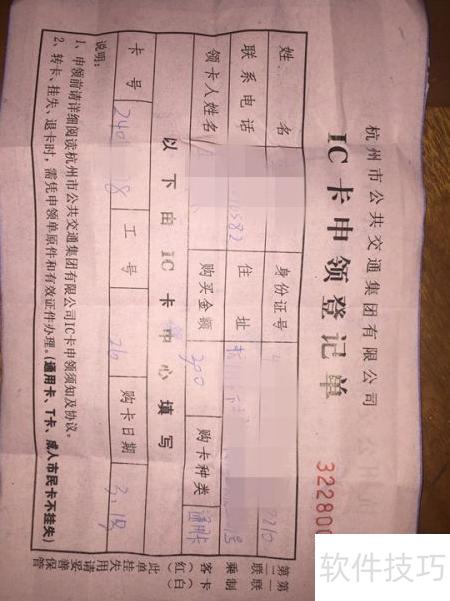 杭州市公共交通集团有限公司
IC卡申领登记单
322800
姓 名 身份证号
联系电话 住 址
领卡人姓名 购买金额 300 购卡种类 通用卡
以下由IC卡中心填写
卡 号 工 号 26 购卡日期 3.19
说明:
1、申领前请详细阅读杭州市公共交通集团有限公司IC卡申领须知及协议。
2、转卡、挂失、退卡时,需凭申领单原件和有效证件办理。(通用卡、T卡、成人市民卡不挂失)
第一联 制卡(白)
第二联 乘客(红)
此单挂失用请妥善保管
软件技巧